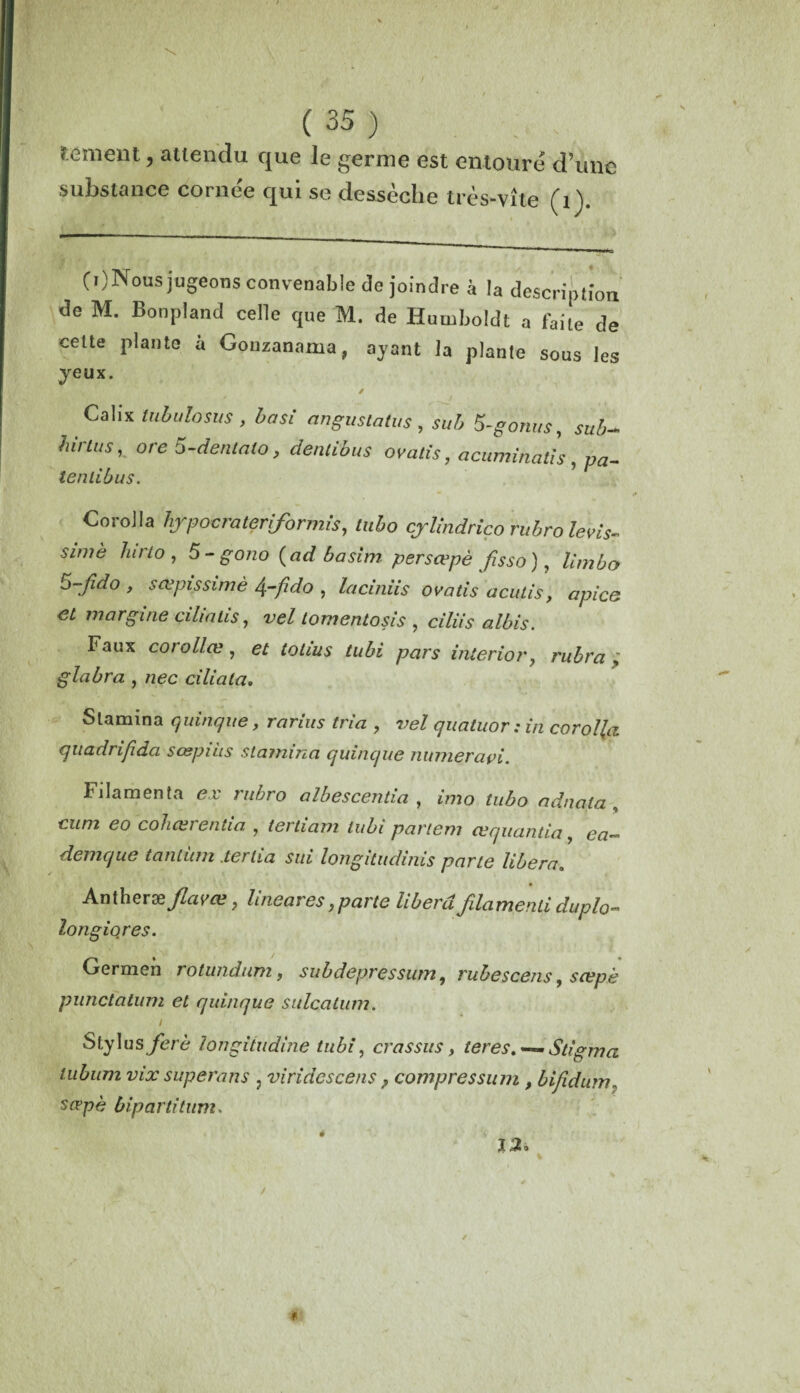 ( 35 )
tement, attendu que le germe est entouré d'une
substance cornée qui se dessèche très-vîte (1).
(1) Nous jugeons convenable de joindre à la description
de M. Bonpland celle que M. de Humboldt a faite de
cette plante à Gonzanama, ayant la plante sous les
yeux.
Calix tubulosus, basi angustatus, sub 5-gonus, sub-
hirtus, ore 5-dentato, dentibus ovatis, acuminatis, pa-
tentibus.
Corolla hypocrateriformis, tubo cylindrico rubro levis-
simè hirto, 5-gono (ad basim persæpè fisso), limbo
5-fido, sæpissimè 4-fido, laciniis ovatis acutis, apice
et margine ciliatis, vel tomentosis, ciliis albis.
Faux corollæ, et totius tubi pars interior, rubra,
glabra, nec ciliata.
Stamina quinque, rarius tria, vel quatuor : in corolla
quadrifida sæpiùs stamina quinque numeravi.
Filamenta ex rubro albescentia, imo tubo adnata,
cum eo cohærentia, tertiam tubi partem æquantia, ea-
demque tantùm tertia sui longitudinis parte libera.
Antheræ flavæ, lineares, parte liberâ filamenti duplo-
longiores.
Germen rotundum, subdepressum, rubescens, sæpè
punctatum et quinque sulcatum.
Stylus ferè longitudine tubi, crassus, teres. — Stigma
tubum vix superans, viridescens, compressum, bifidum,
sæpè bipartitum.
12.